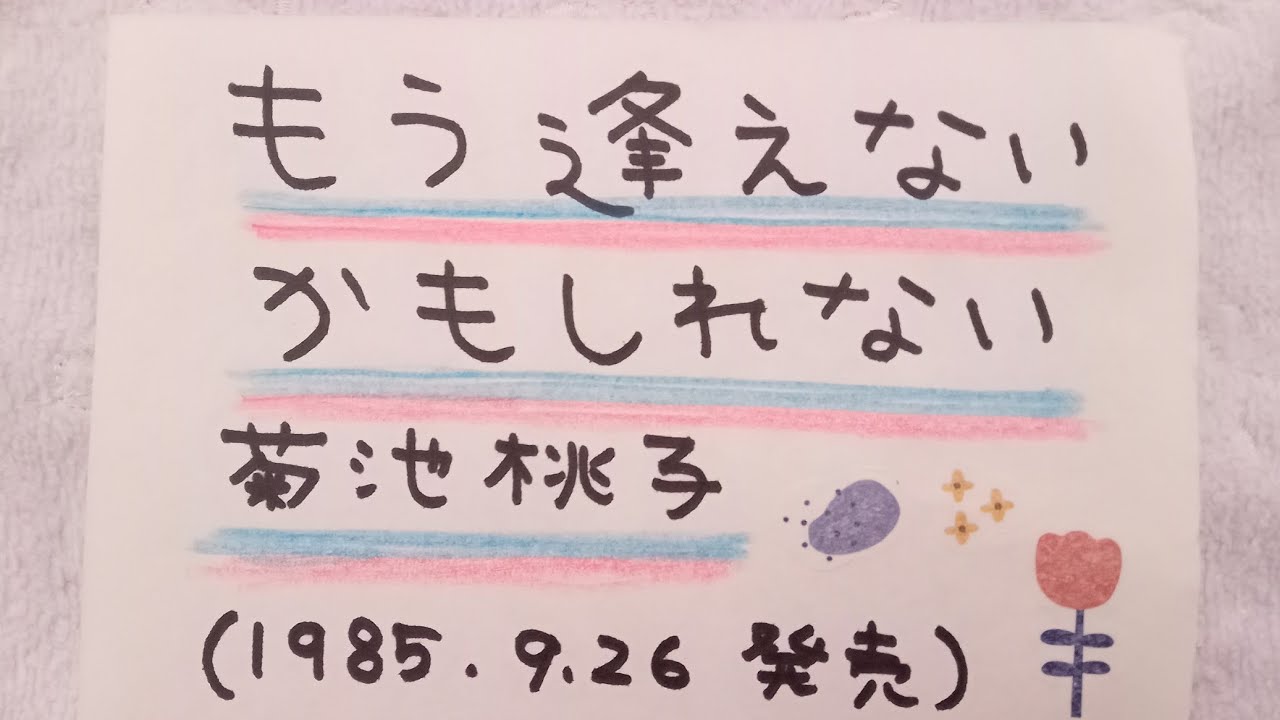 もう逢えない
かもしれない
菊池桃子
(1985.9.26 発売)